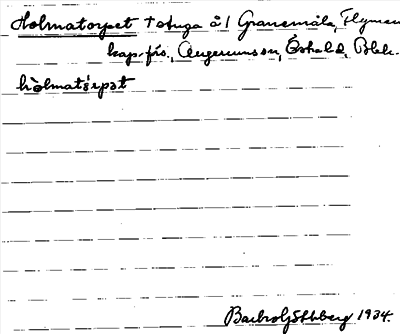 Holmatorpet † stuga å 1 Granemåla, Flymen
kap.-fös., Augerumssn, Östra hd, Blek.
hòlmatårpət
Barbro Söhrberg 1934.